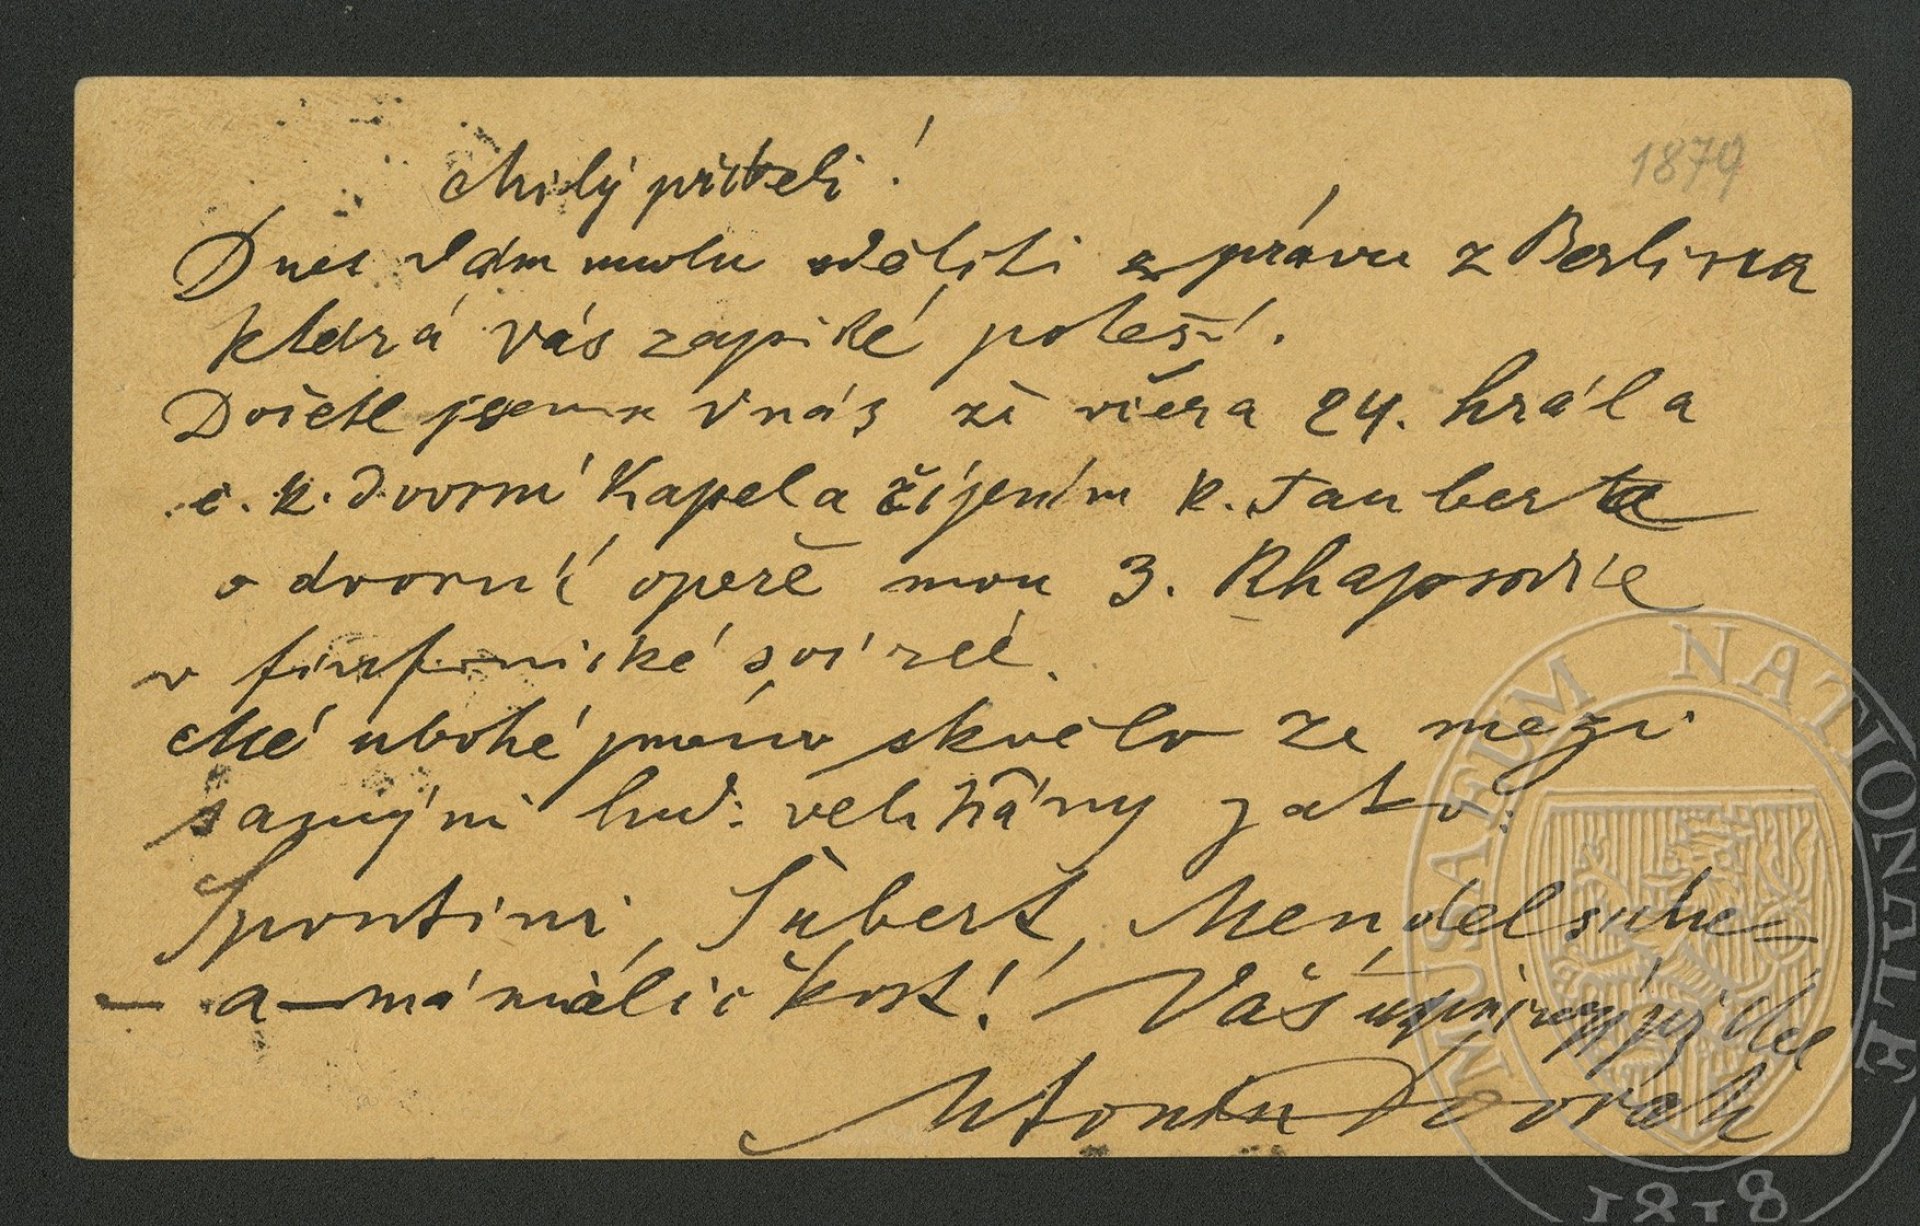 1879
Milý příteli!
Dnes Vám mohu sděliti zprávu z Berlína
která Vás zajisté potěší.
Dočetl jsem se v nás že včera 24. hrála
c. k. dvorní kapela řízením k. Tauberta
v dvorní opeře mou 3. Rhapsodie
v sinfonické soirée.
Mé ubohé jméno skvělo se mezi
samými hud: velikány jako:
Spontini, Šubert, Mendelsohn
— a má maličkost! Váš upřímný přítel
Antonín Dvořák
MUSAEUM NATIONALE
1818